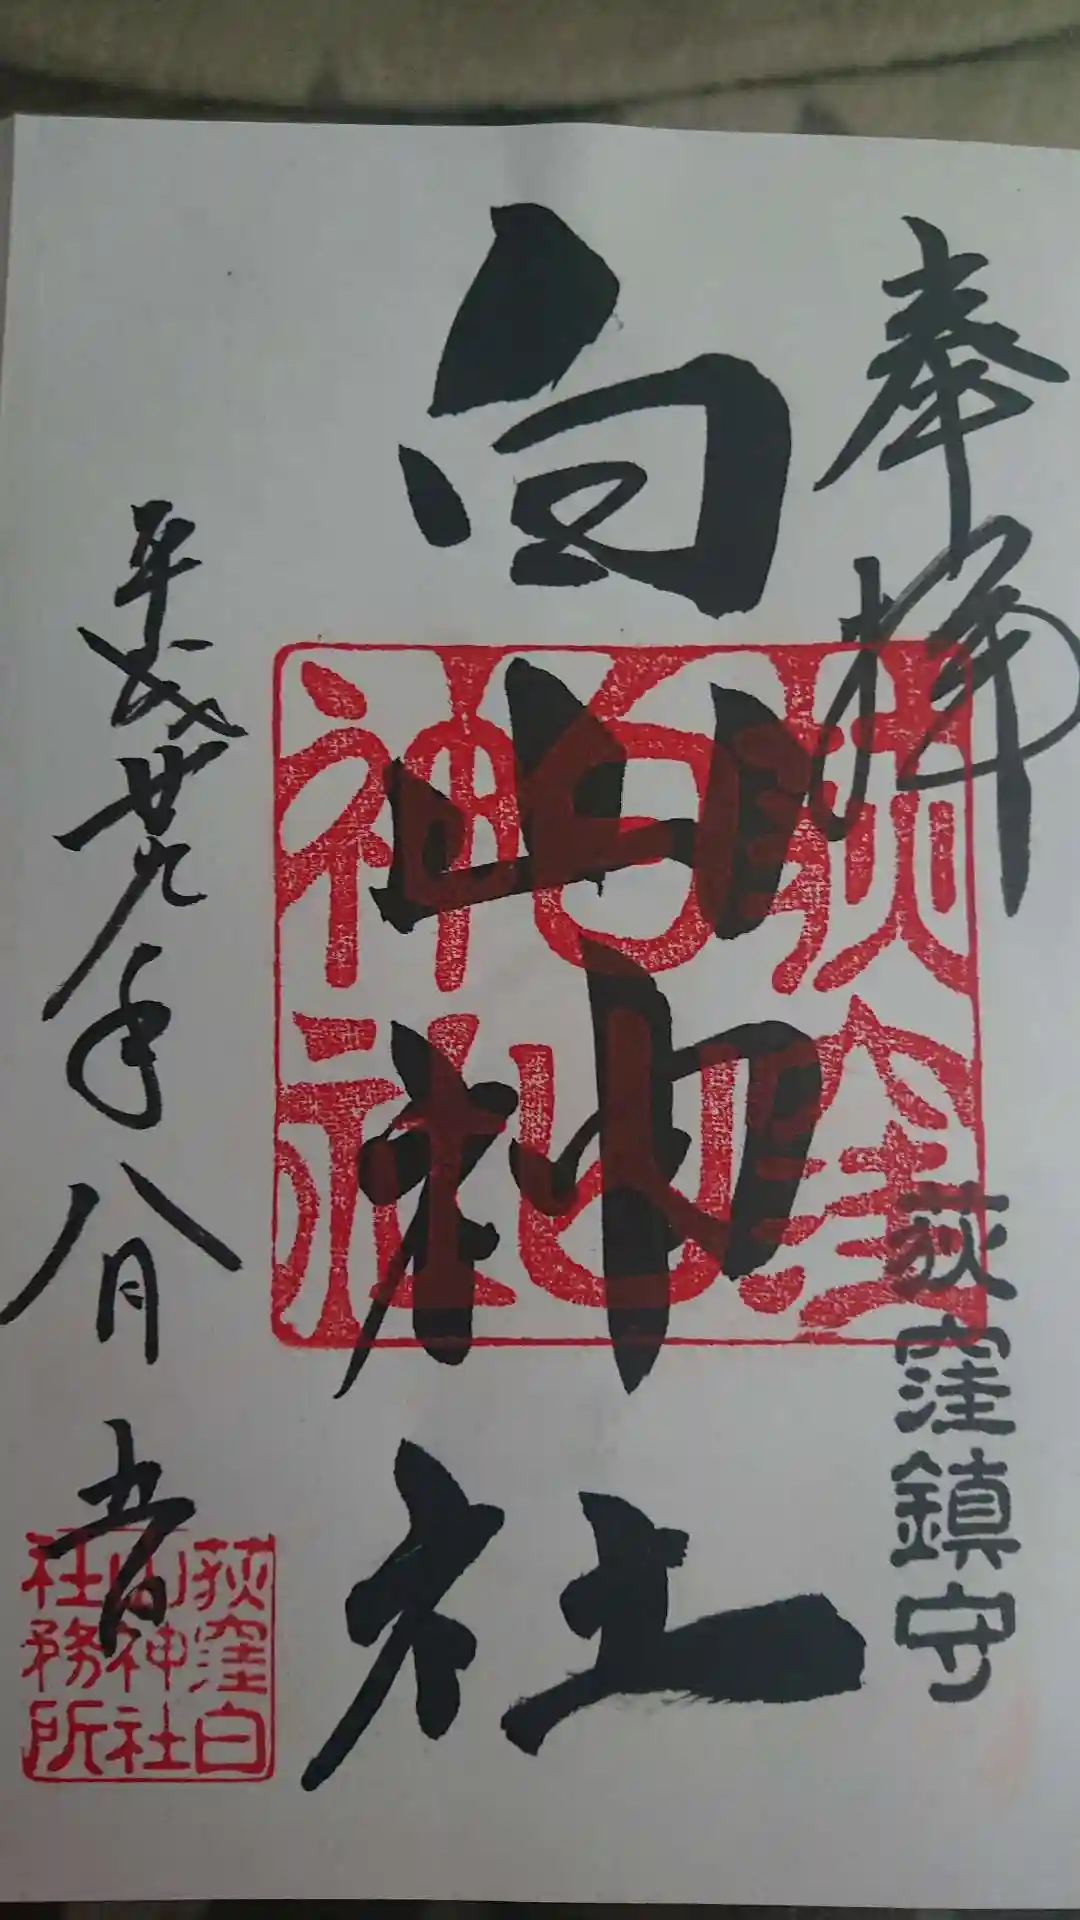 奉拝
荻窪鎮守
白山神社
荻窪
白山
神社
平成廿九年八月五日
荻窪白
山神社
社務所